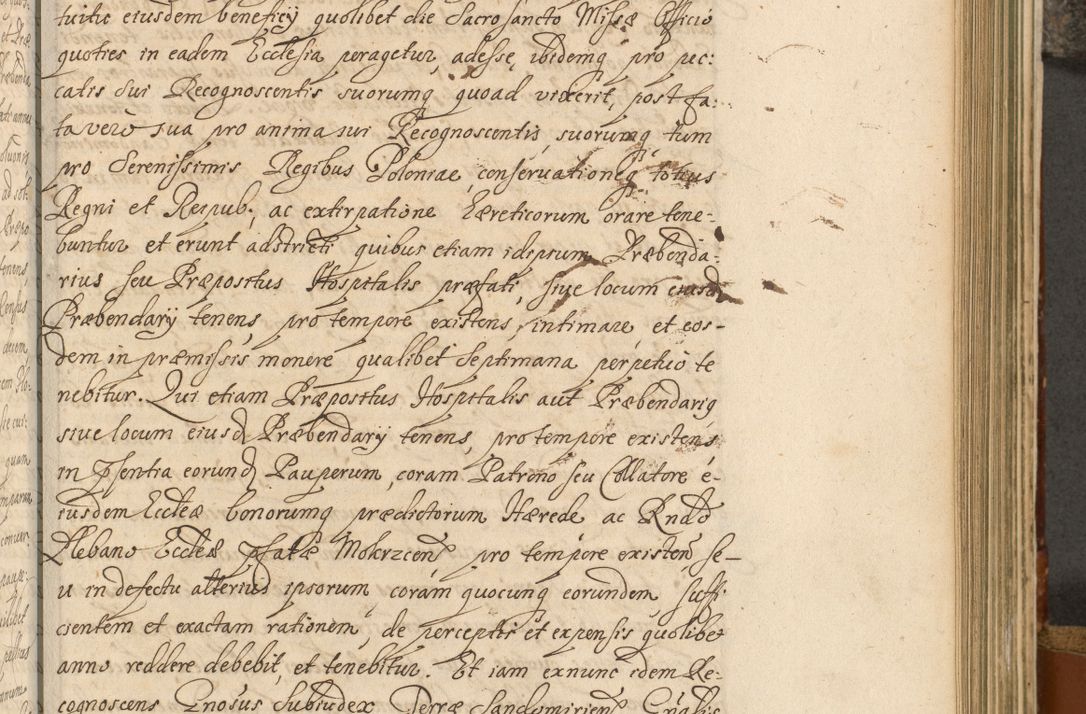 tuitu eiusdem beneficij quolibet die Sacro sancto Missæ Officio
quoties in eadem Ecclesia peragetur, adesse, ibidemq pro pec:
catis sui Recognoscentis suorumq quoad vixerit, post fa:
ta vero sua pro anima sui Recognoscentis, suorumq tum
pro Serenissimis Regibus Poloniae, conservationeq totius
Regni et Reipub:, ac extirpatione Hæreticorum orare tene-
buntur et erunt adstricti quibus etiam idipsum Præbenda-
rius seu Præpositus Hospitalis præfati, sive locum eiusd
Præbendarij tenens, pro tempore existens, intimare et eos-
dem in præmissis monere qualibet Septimana perpetuo te
nebitur. Qui etiam Præpositus Hospitalis aut Præbendarig
sive locum eiusd Præbendarij tenens, pro tempore existens,
in pſentia eorund Pauperum, coram Patrono seu Collatore é-
iusdem Eccleæ bonorumq prædictorum Hærede ac Rndo
Plebano Eccleæ pfatæ Mokrzcen, pro tempore existen, se-
u in defectu alterius ipsorum coram quocunq eorundem suffi
cientem et exactam rationem, de perceptis et expensis quolibet
anno reddere debebit, et tenebitur. Et iam exnunc idem Re-
cognoscens Gnosus Subiudex Terræ Sandomirien Gnalis